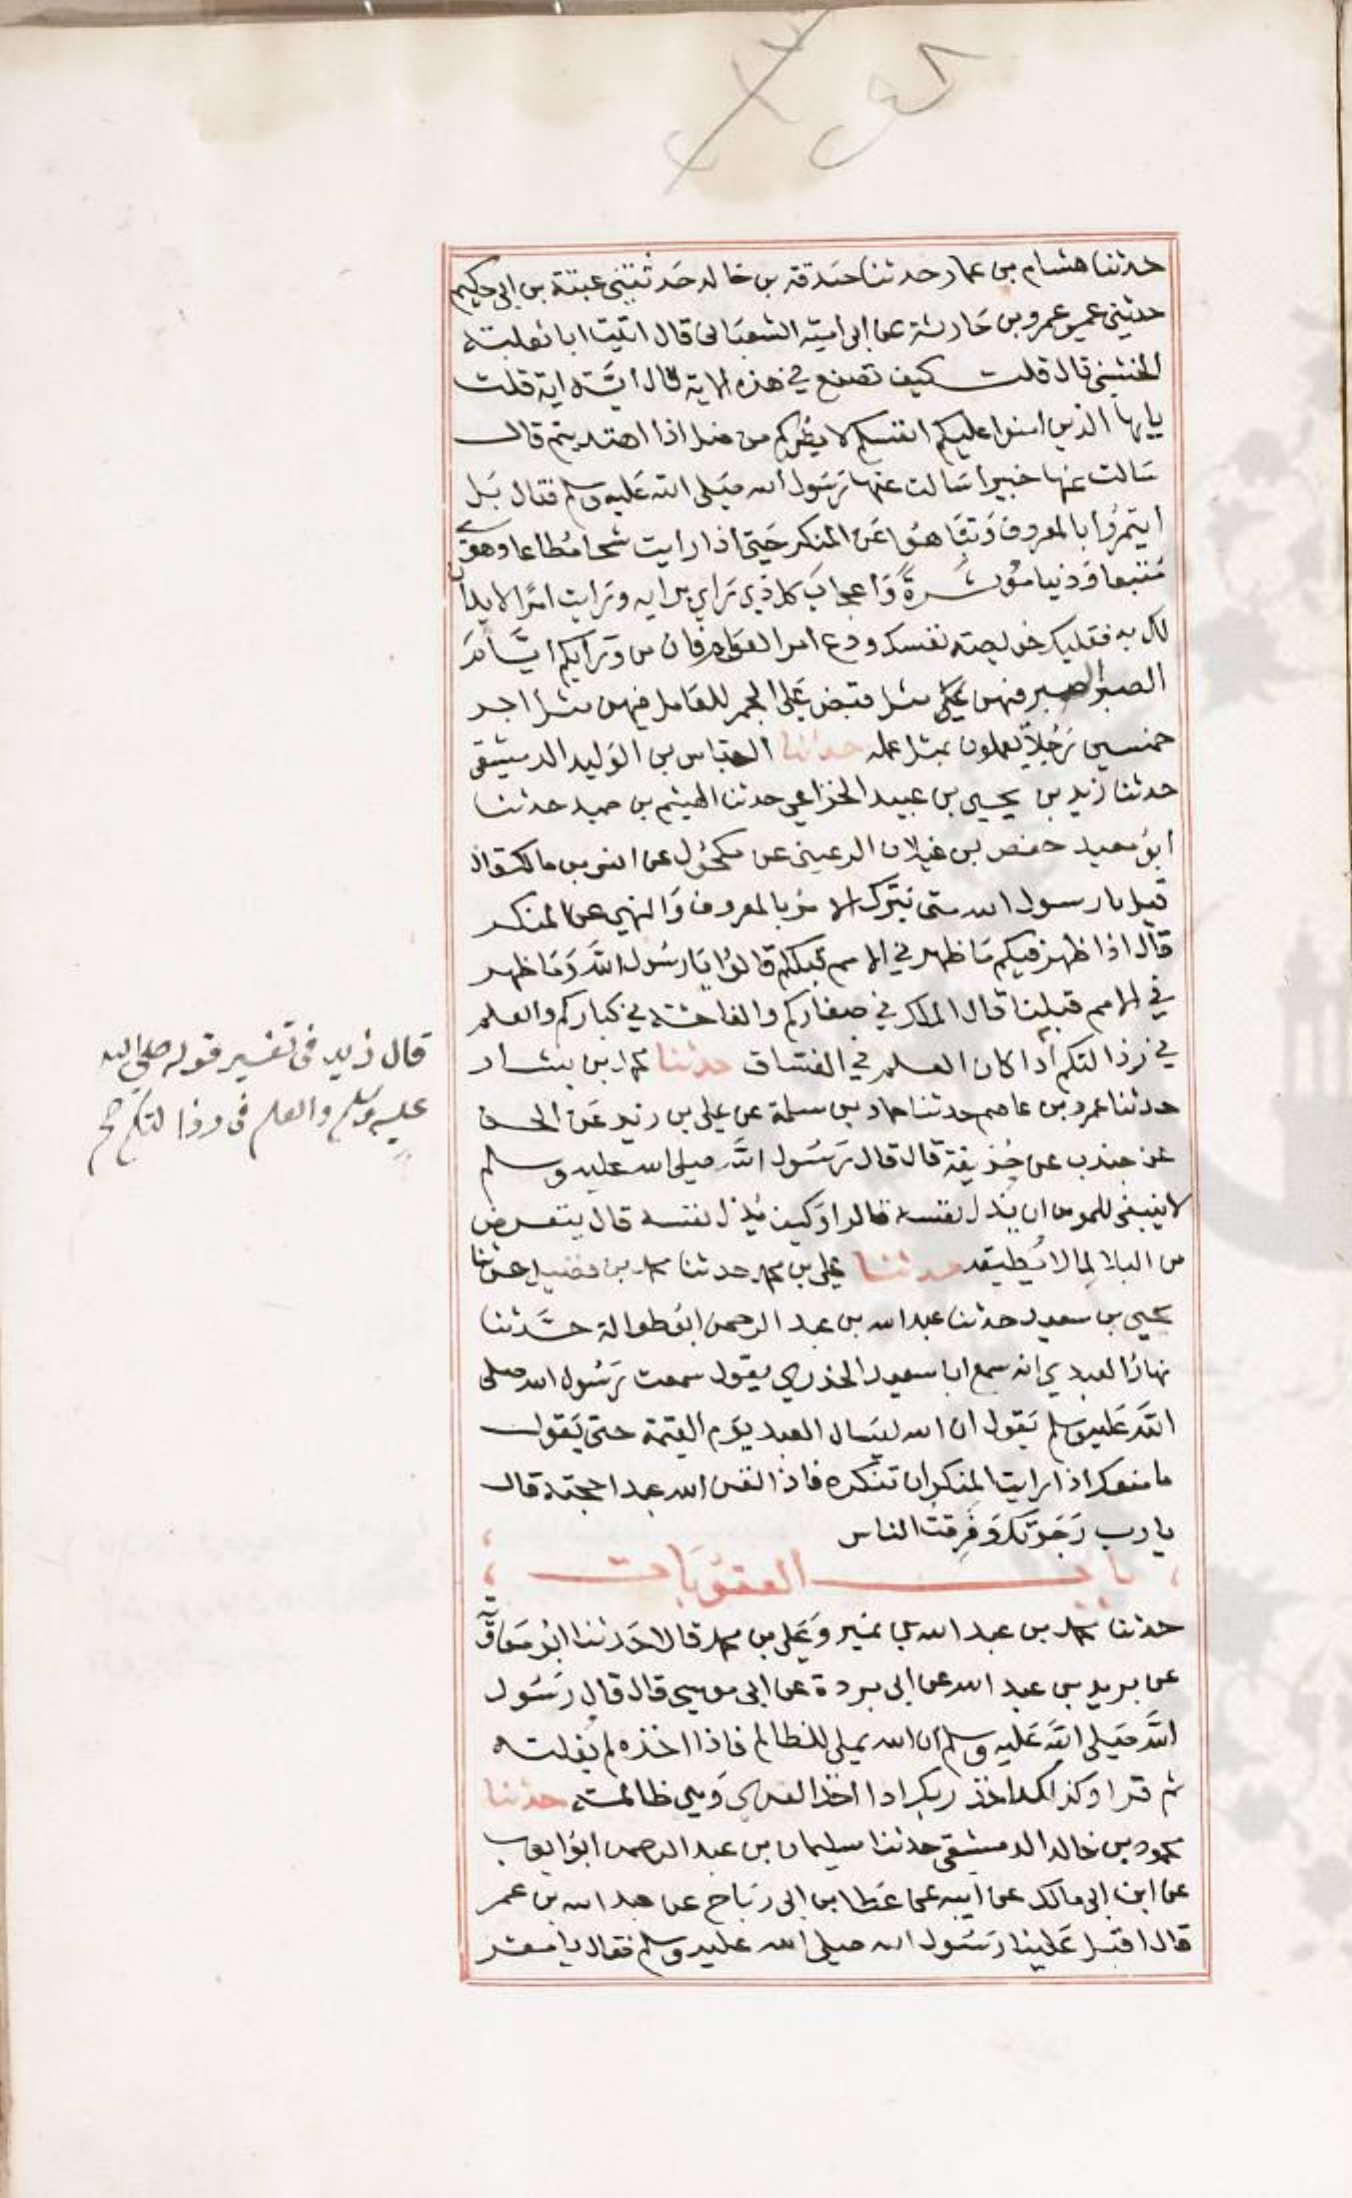 حدثنا هشام بن عمار حدثنا صدقة بن خالد حدثنى عتبة بن ابى حكيم
حدثنى عمى عمرو بن حارثة عن ابى امية الشعبانى قال اتيت ابا ثعلبة
الخشنى قال قلت كيف تصنع في هذه الاية قال اية اية قلت
يايها الذين امنوا عليكم انفسكم لا يضركم من ضل اذا اهتديتم قال
سالت عنها خبيرا سالت عنها رسول الله صلى الله عليه وسلم فقال بل
ايتمروا بالمعروف وتناهوا عن المنكر حتى اذا رايت شحا مطاعا وهوى
متبعا ودنيا مؤثرة واعجاب كل ذي راي برايه ورايت امرا لا يدان
لك به فعليك خويصة نفسك ودع امر العوام فان من ورائكم ايام
الصبر الصبر فيهن على مثل قبض على الجمر للعامل فيهن مثل اجر
خمسين رجلا يعملون بمثل عمله حدثنا العباس بن الوليد الدمشقى
حدثنا زيد بن يحيى بن عبيد الخزاعي حدثنا الهيثم بن حميد حدثنا
ابو معيد حفص بن غيلان الرعينى عن مكحول عن انس بن مالك قال
قيل يا رسول الله متى نترك الامر بالمعروف والنهي عن المنكر
قال اذا ظهر فيكم ما ظهر في الامم قبلكم قالوا يا رسول الله وما ظهر
في الامم قبلنا قال الملك في صغاركم والفاحشة في كباركم والعلم
في رذالتكم اذا كان العلم في الفساق حدثنا محمد بن بشار
حدثنا عمرو بن عاصم حدثنا حماد بن سلمة عن على بن زيد عن الحسن
عن جندب عن حذيفة قال قال رسول الله صلى الله عليه وسلم
لا ينبغى للمومن ان يذل نفسه قالوا وكيف يذل نفسه قال يتعرض
من البلاء لما لا يطيقه حدثنا على بن محمد حدثنا محمد بن فضيل حدثنا
يحيى بن سعيد حدثنا عبد الله بن عبد الرحمن ابو طوالة حدثنا
نهار العبدي انه سمع ابا سعيد الخدري يقول سمعت رسول الله صلى
الله عليه وسلم يقول ان الله ليسال العبد يوم القيمة حتى يقول
ما منعك اذا رايت المنكر ان تنكره فاذا لقن الله عبدا حجته قال
يا رب رجوتك وفرقت الناس
باب العقوبات
حدثنا محمد بن عبد الله بن نمير وعلى بن محمد قالا حدثنا ابو معاوية
عن بريد بن عبد الله عن ابى بردة عن ابى موسى قال قال رسول
الله صلى الله عليه وسلم ان الله يملى للظالم فاذا اخذه لم يفلته
ثم قرا وكذلك اخذ ربك اذا اخذ القرى وهى ظالمة حدثنا
محمود بن خالد الدمشقى حدثنا سليمان بن عبد الرحمن ابو ايوب
عن ابن ابى مالك عن ابيه عن عطا بن ابى رباح عن عبد الله بن عمر
قال اقبل علينا رسول الله صلى الله عليه وسلم فقال يا معشر
قال زيد فى تفسير قوله صلى الله
عليه وسلم والعلم فى رذالتكم صح